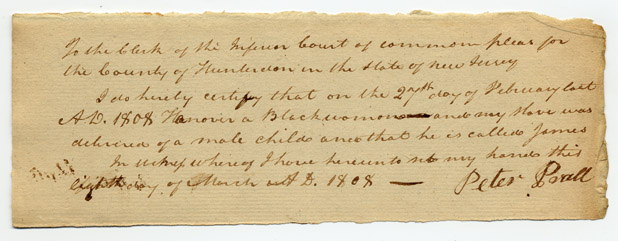 To the Clerk of the Inferior Court of common pleas for
the County of Hunterdon in the State of new Jersey
I do hereby certify that on the 27th day of February last
AD. 1808 Hanover a Blackwoman and my slave was
delivered of a male child and that he is called James
In witness whereof I have hereunto set my hand this
eighth day of March AD. 1808 — Peter Prall